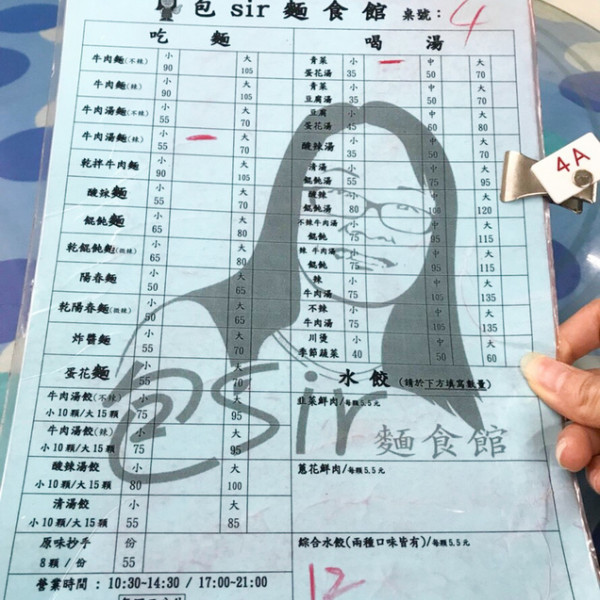 包 sir 麵食館 桌號：4
吃 麵
牛肉麵(不辣) 小 90 大 105
牛肉麵(辣) 小 90 大 105
牛肉湯麵(不辣) 小 55 大 70
牛肉湯麵(辣) 小 55 大 70
乾拌牛肉麵 小 90 大 105
酸辣麵 小 55 大 70
餛飩麵 小 65 大 80
乾餛飩麵(微辣) 小 65 大 80
陽春麵 小 50 大 65
乾陽春麵(微辣) 小 50 大 65
炸醬麵 小 55 大 70
蛋花麵 小 55 大 70
牛肉湯餃(不辣) 小 大
小10顆/大15顆 75 95
牛肉湯餃(辣) 小 大
小10顆/大15顆 75 95
酸辣湯餃 小 大
小10顆/大15顆 80 100
清湯餃 小 大
小10顆/大15顆 55 85
原味抄手 份
8顆/份 55
營業時間：10:30~14:30 / 17:00~21:00
喝 湯
青菜蛋花湯 小 35 中 50 大 70
青菜豆腐湯 小 35 中 50 大 70
豆腐蛋花湯 小 45 中 60 大 80
酸辣湯 小 35 中 50 大 70
清湯餛飩湯 小 55 中 75 大 95
酸辣餛飩湯 小 80 中 100 大 120
不辣牛肉湯餛飩 小 75 中 95 大 115
辣 牛肉湯餛飩 小 75 中 95 大 115
辣牛肉湯 小 75 中 105 大 135
不辣牛肉湯 小 75 中 105 大 135
川燙季節蔬菜 小 40 中 50 大 60
水餃 (請於下方填寫數量)
韭菜鮮肉/每顆5.5元
蔥花鮮肉/每顆5.5元
綜合水餃(兩種口味皆有)/每顆5.5元
12
包Sir 麵食館
4A